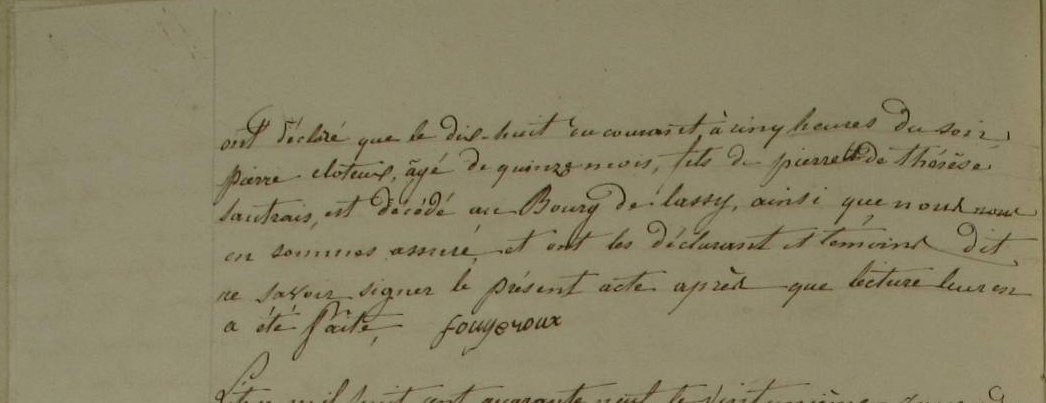 ont déclaré que le dix huit du courant, à cinq heures du soir,
pierre cloteux, âgé de quinze mois, fils de pierre et de thérèse
sautrais, est décédé au Bourg de lassy, ainsi que nous nous
en sommes assuré, et ont les déclarant et témoins dit
ne savoir signer le présent acte après que lecture leur en
a été faite, fougeroux
L'an mil huit cent quarante neuf le vint unième jour d